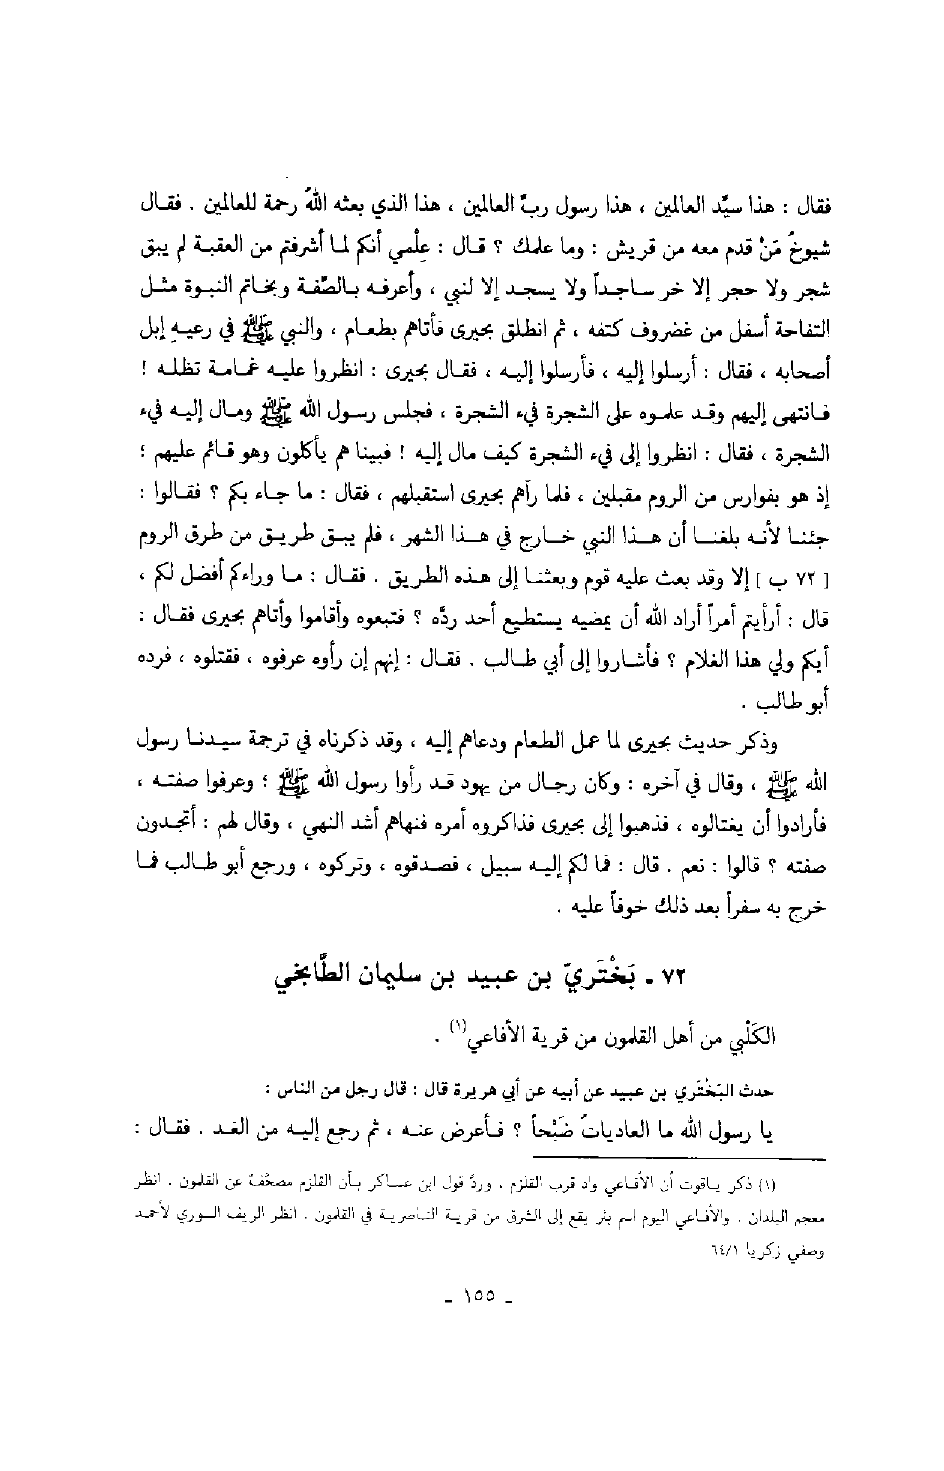 فقال : هذا سيّد العالمين ، هذا رسول ربّ العالمين ، هذا الذي بعثه اللهُ رحمة للعالمين . فقـال
شيوخُ مَنْ قدم معه من قريش : وما علمك ؟ قـال : عِلْمي أنكم لما أشرفتم من العقبـة لم يبق
شجر ولا حجر إلا خر ساجداً ولا يسجد إلا لنبي ، وأعرفه بـالصّفـة وبخـاتم النبوة مثـل
التفاحة أسفل من غضروف كتفه ، ثم انطلق بحيرى فأتاهم بطعام ، والنبي ﷺ في رعيـه إبل
أصحابه ، فقال : أرسلوا إليه ، فأرسلوا إليـه ، فقـال بحيرى : انظروا عليـه غمـامـة تظلـه !
فـانتهى إليهم وقـد علمـوه على الشجرة فيء الشجرة ، فجلس رسـول الله ﷺ ومـال إليـه فيء
الشجرة ، فقال : انظروا إلى فيء الشجرة كيف مال إليه ! فبينا هم يأكلون وهو قـائم عليهم ؛
إذ هو بفوارس من الروم مقبلين ، فلما رآهم بحيرى استقبلهم ، فقال : ما جـاء بكم ؟ فقـالوا :
جئنـا لأنـه بلغنـا أن هـذا النبي خـارج في هـذا الشهر ، فلم يبـق طريـق من طرق الروم
[ ٧٢ ب ] إلا وقد بعث عليه قوم وبعثنـا إلى هـذه الطريق . فقـال : مـا وراءكم أفضل لكم ،
قال : أرأيتم أمراً أراد الله أن يمضيه يستطيع أحد ردّه ؟ فتبعوه وأقاموا وأتاهم بحيرى فقـال :
أيكم ولي هذا الغلام ؟ فأشاروا إلى أبي طـالب . فقـال : إنهم إن رأوه عرفوه ، فقتلوه ، فرده
أبو طالب .
وذكر حديث بحيرى لما عمل الطعام ودعاهم إليه ، وقد ذكرناه في ترجمة سيـدنـا رسول
الله ﷺ ، وقال في آخره : وكان رجال من يهود قـد رأوا رسول الله ﷺ ؛ وعرفوا صفتـه ،
فأرادوا أن يغتالوه ، فذهبوا إلى بحيرى فذاكروه أمره فنهاهم أشد النهي ، وقال لهم : أتجدون
صفته ؟ قالوا : نعم . قال : فما لكم إليـه سبيل ، فصـدقوه ، وتركوه ، ورجع أبو طـالب فمـا
خرج به سفراً بعد ذلك خوفاً عليه .
٧٢ ـ بَخْتَريّ بن عبيد بن سليمان الطَّابخي
الكَلْبي من أهل القلمون من قرية الأفاعي(١) .
حدث البَخْتَري بن عبيد عن أبيه عن أبي هريرة قال : قال رجل من الناس :
يا رسول الله ما العاديات ضَبْحاً ؟ فـأعرض عنـه ، ثم رجع إليـه من الغـد . فقـال :
(١) ذكر يـاقوت أن الأفـاعي واد قرب القلزم ، وردّ قول ابن عسـاكر بـأن القلزم مصحّفٌ عن القلمون . انظر
معجم البلدان . والأفـاعي اليوم اسم بئر يقع إلى الشرق من قريـة النـاصريـة في القلمون . انظر الريف السوري لأحمـد
وصفي زكريا ٦٤/١
ـ ١٥٥ ـ